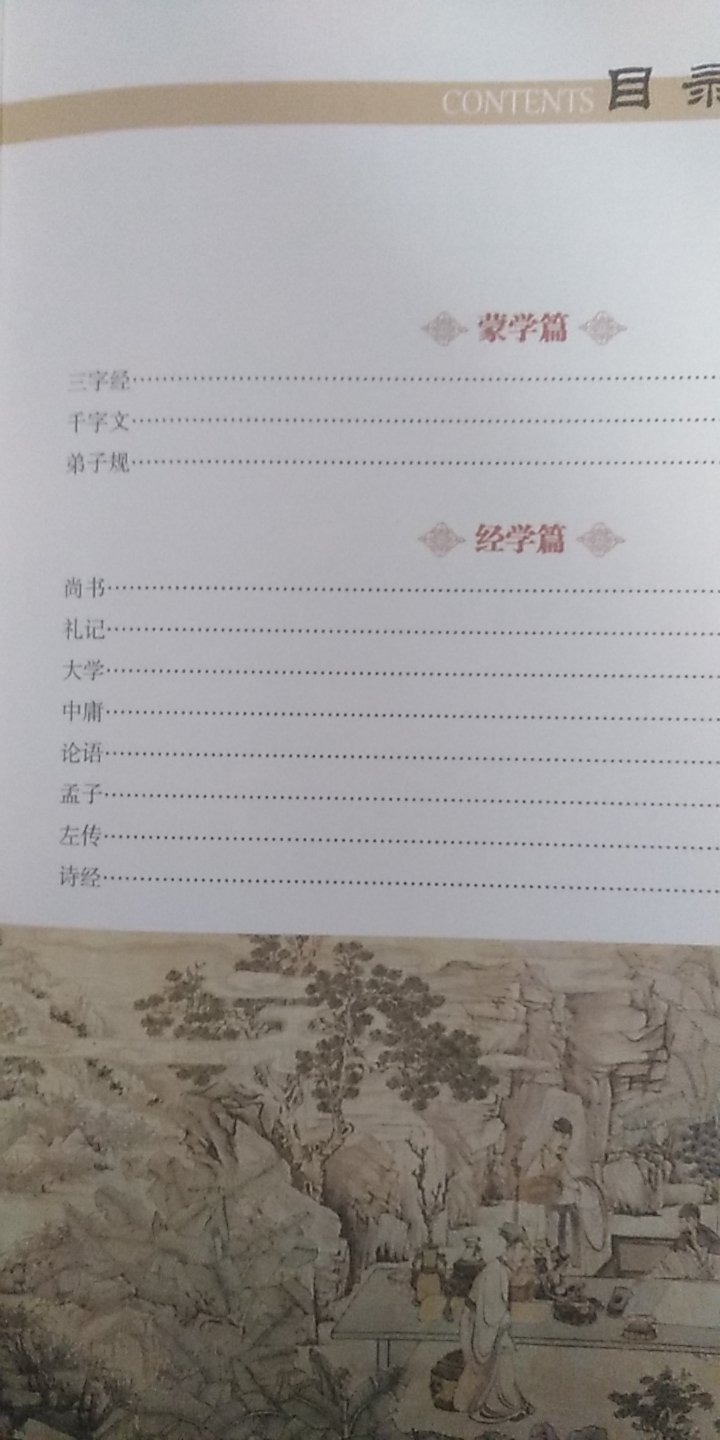 CONTENTS 目录
蒙学篇
三字经
千字文
弟子规
经学篇
尚书
礼记
大学
中庸
论语
孟子
左传
诗经